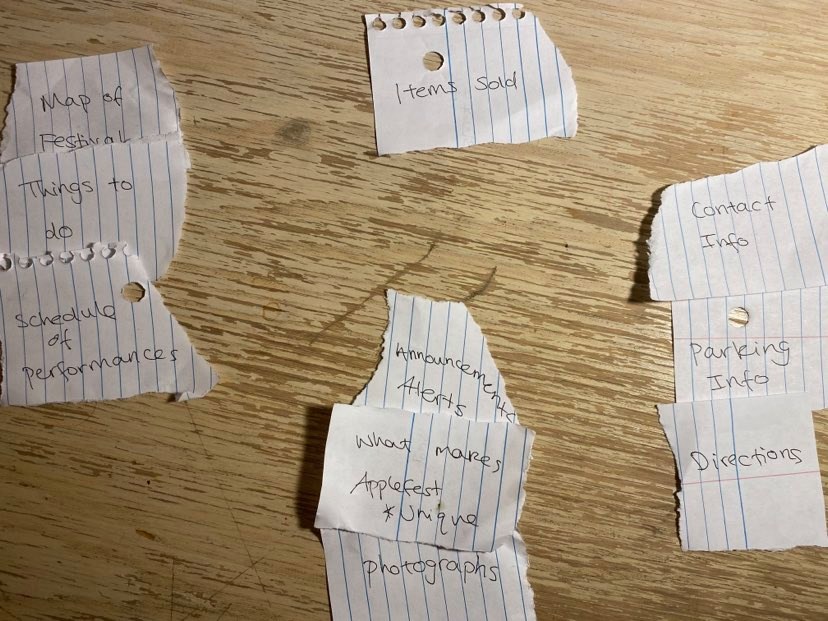 Map of
Festival
Things to
do
Schedule
of
performances
Items Sold
Announcements
Alerts
What makes
Applefest
*Unique
photographs
Contact
Info
Parking
Info
Directions